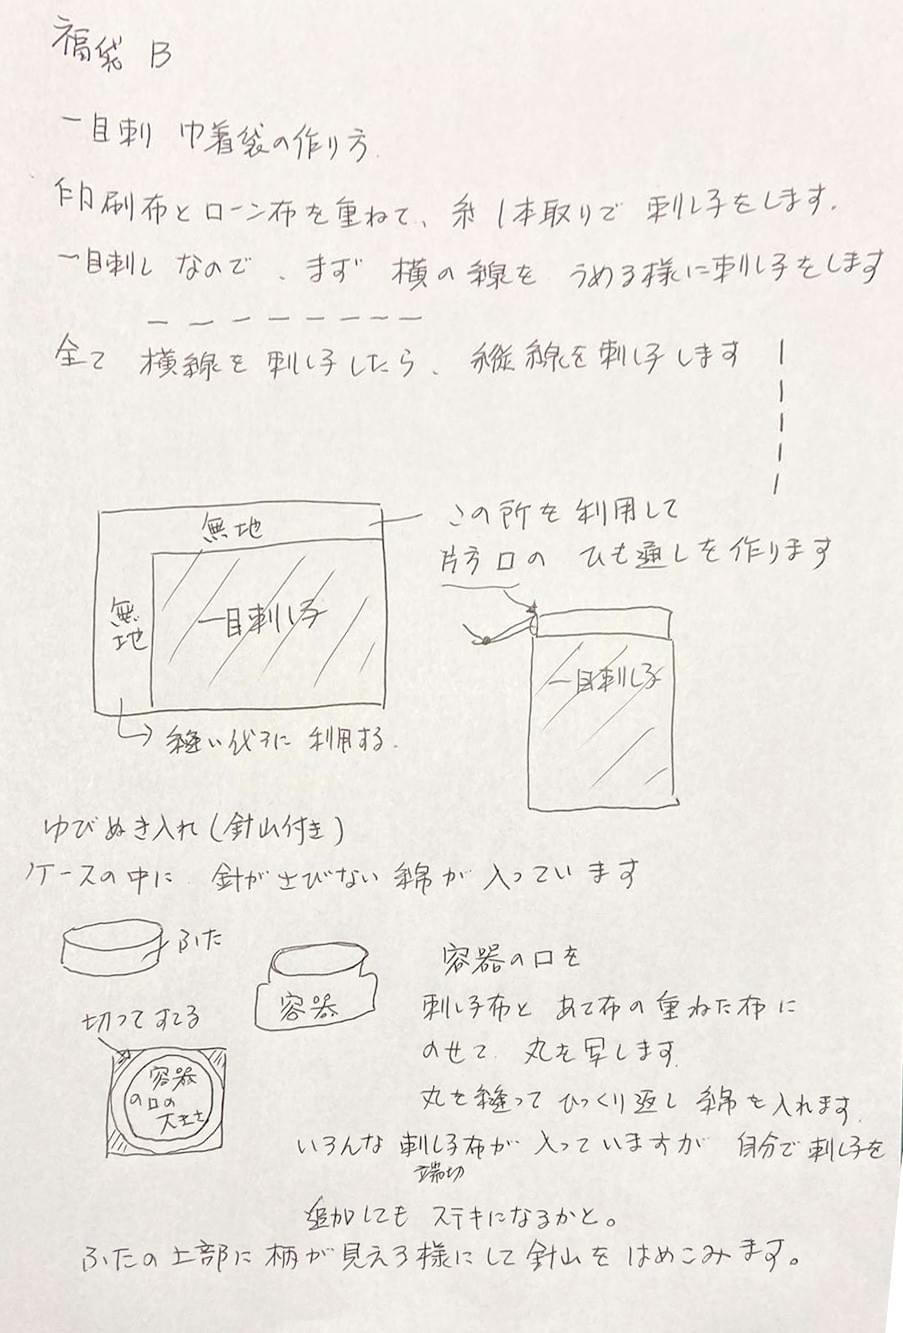 福袋 B
一目刺 巾着袋の作り方.
印刷布とローン布を重ねて、糸1本取りで 刺し子をします.
一目刺し なので、まず 横の線を うめる様に刺し子をします
全て 横線を 刺し子したら、縦線を刺し子します
無地
無地
一目刺し子
縫い代に 利用する.
この所を 利用して
片方口の ひも通しを作ります
一目刺し子
ゆびぬき入れ(針山付き)
ケースの中に 針がさびない 綿が 入っています
ふた
容器
切ってすてる
容器
の口の
大きさ
容器の口を
刺し子布と あて布の重ねた布に
のせて 丸を写します.
丸を縫って ひっくり返し 綿を入れます.
いろんな 刺し子布が 入っていますが 自分で刺し子を
端切
追加しても ステキになるかと。
ふたの上部に柄が見える様にして針山を はめこみます。